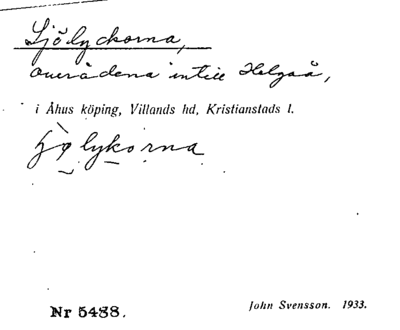 Sjölyckorna,
områdena intill Helgeå,
i Åhus köping, Villands hd, Kristianstads l.
Nr 5488.
John Svensson. 1933.